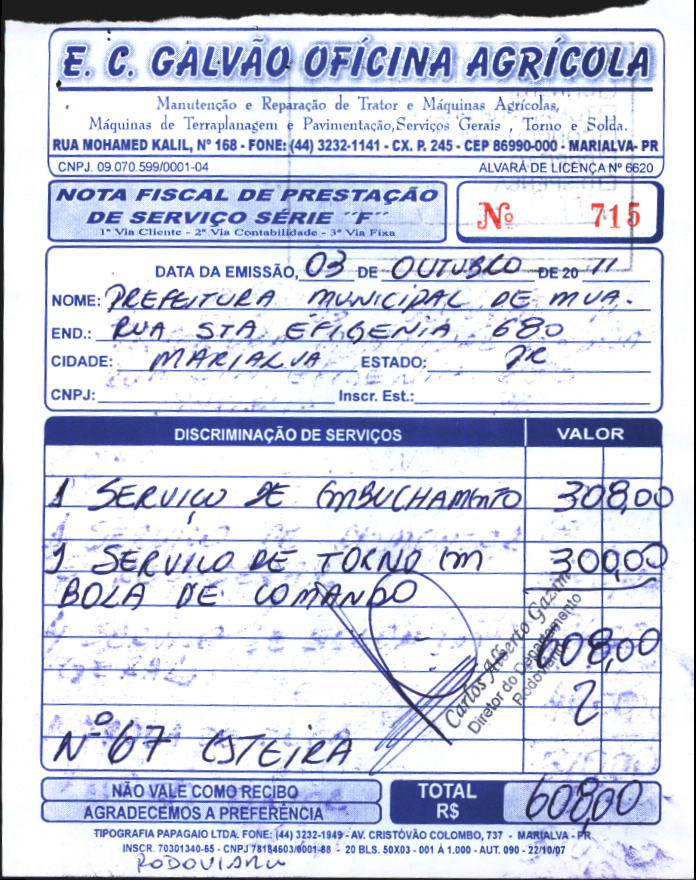 E. C. GALVÃO OFÍCINA AGRÍCOLA
Manutenção e Reparação de Trator e Máquinas Agrícolas,
Máquinas de Terraplanagem e Pavimentação,Serviços Gerais , Torno e Solda.
RUA MOHAMED KALIL, Nº 168 - FONE: (44) 3232-1141 - CX. P. 245 - CEP 86990-000 - MARIALVA- PR
CNPJ. 09.070.599/0001-04 ALVARÁ DE LICENÇA Nº 6620
NOTA FISCAL DE PRESTAÇÃO
DE SERVIÇO SÉRIE "F"
1ª Via Cliente - 2ª Via Contabilidade - 3ª Via Fixa
Nº 715
DATA DA EMISSÃO, 03 DE OUTUBRO DE 20 11
NOME: PREFEITURA MUNICIPAL DE MVA.
END.: RUA STA EFIGENIA 680
CIDADE: MARIALVA ESTADO: PR
CNPJ: Inscr. Est.:
DISCRIMINAÇÃO DE SERVIÇOS VALOR
1 SERVIÇO DE EMBUCHAMENTO 308,00
1 SERVIÇO DE TORNO EM 300,00
BOLA DE COMANDO
608,00
Carlos Alberto
Diretor do Departamento
Rodoviário
Nº 67 ESTEIRA
NÃO VALE COMO RECIBO
AGRADECEMOS A PREFERÊNCIA
TOTAL R$ 608,00
TIPOGRAFIA PAPAGAIO LTDA: FONE: (44) 3232-1949 - AV. CRISTÓVÃO COLOMBO, 737 - MARIALVA - PR
INSCR. 70301340-65 - CNPJ 78184603/0001-88 - 20 BLS. 50X03 - 001 À 1.000 - AUT. 090 - 22/10/07
RODOVIARIO